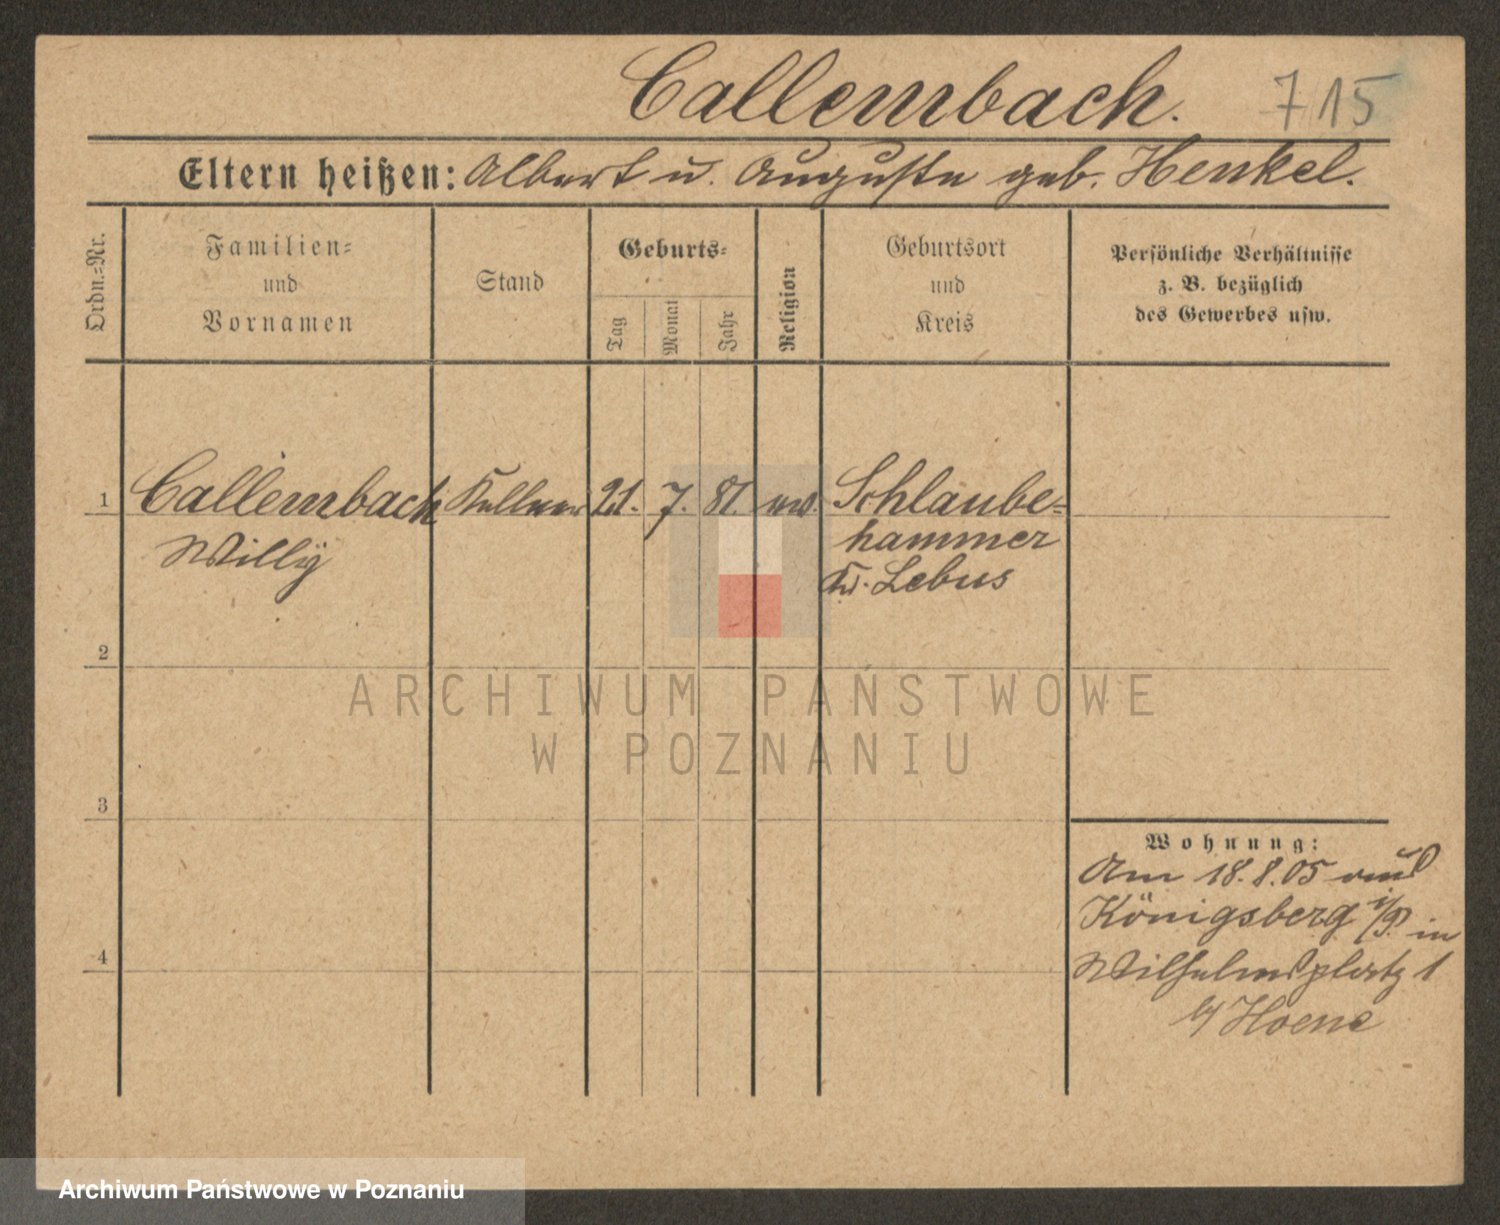 Callembach. 715
Eltern heißen: Albert u. Auguste geb. Henkel.
Ordn.-Nr.
Familien-
und
Vornamen
Stand
Geburts-
Tag
Monat
Jahr
Religion
Geburtsort
und
Kreis
Persönliche Verhältnisse
z. B. bezüglich
des Gewerbes usw.
1 Callembach Kellner 21. 7. 81. ev. Schlaube-
Willÿ
hammer
Kr. Lebus
2
3
4
Wohnung:
Am 18.8.05 aus
Königsberg i/P. in
Wilhelmsplatz 1
b/ Hoene
ARCHIWUM PAŃSTWOWE
W POZNANIU
Archiwum Państwowe w Poznaniu